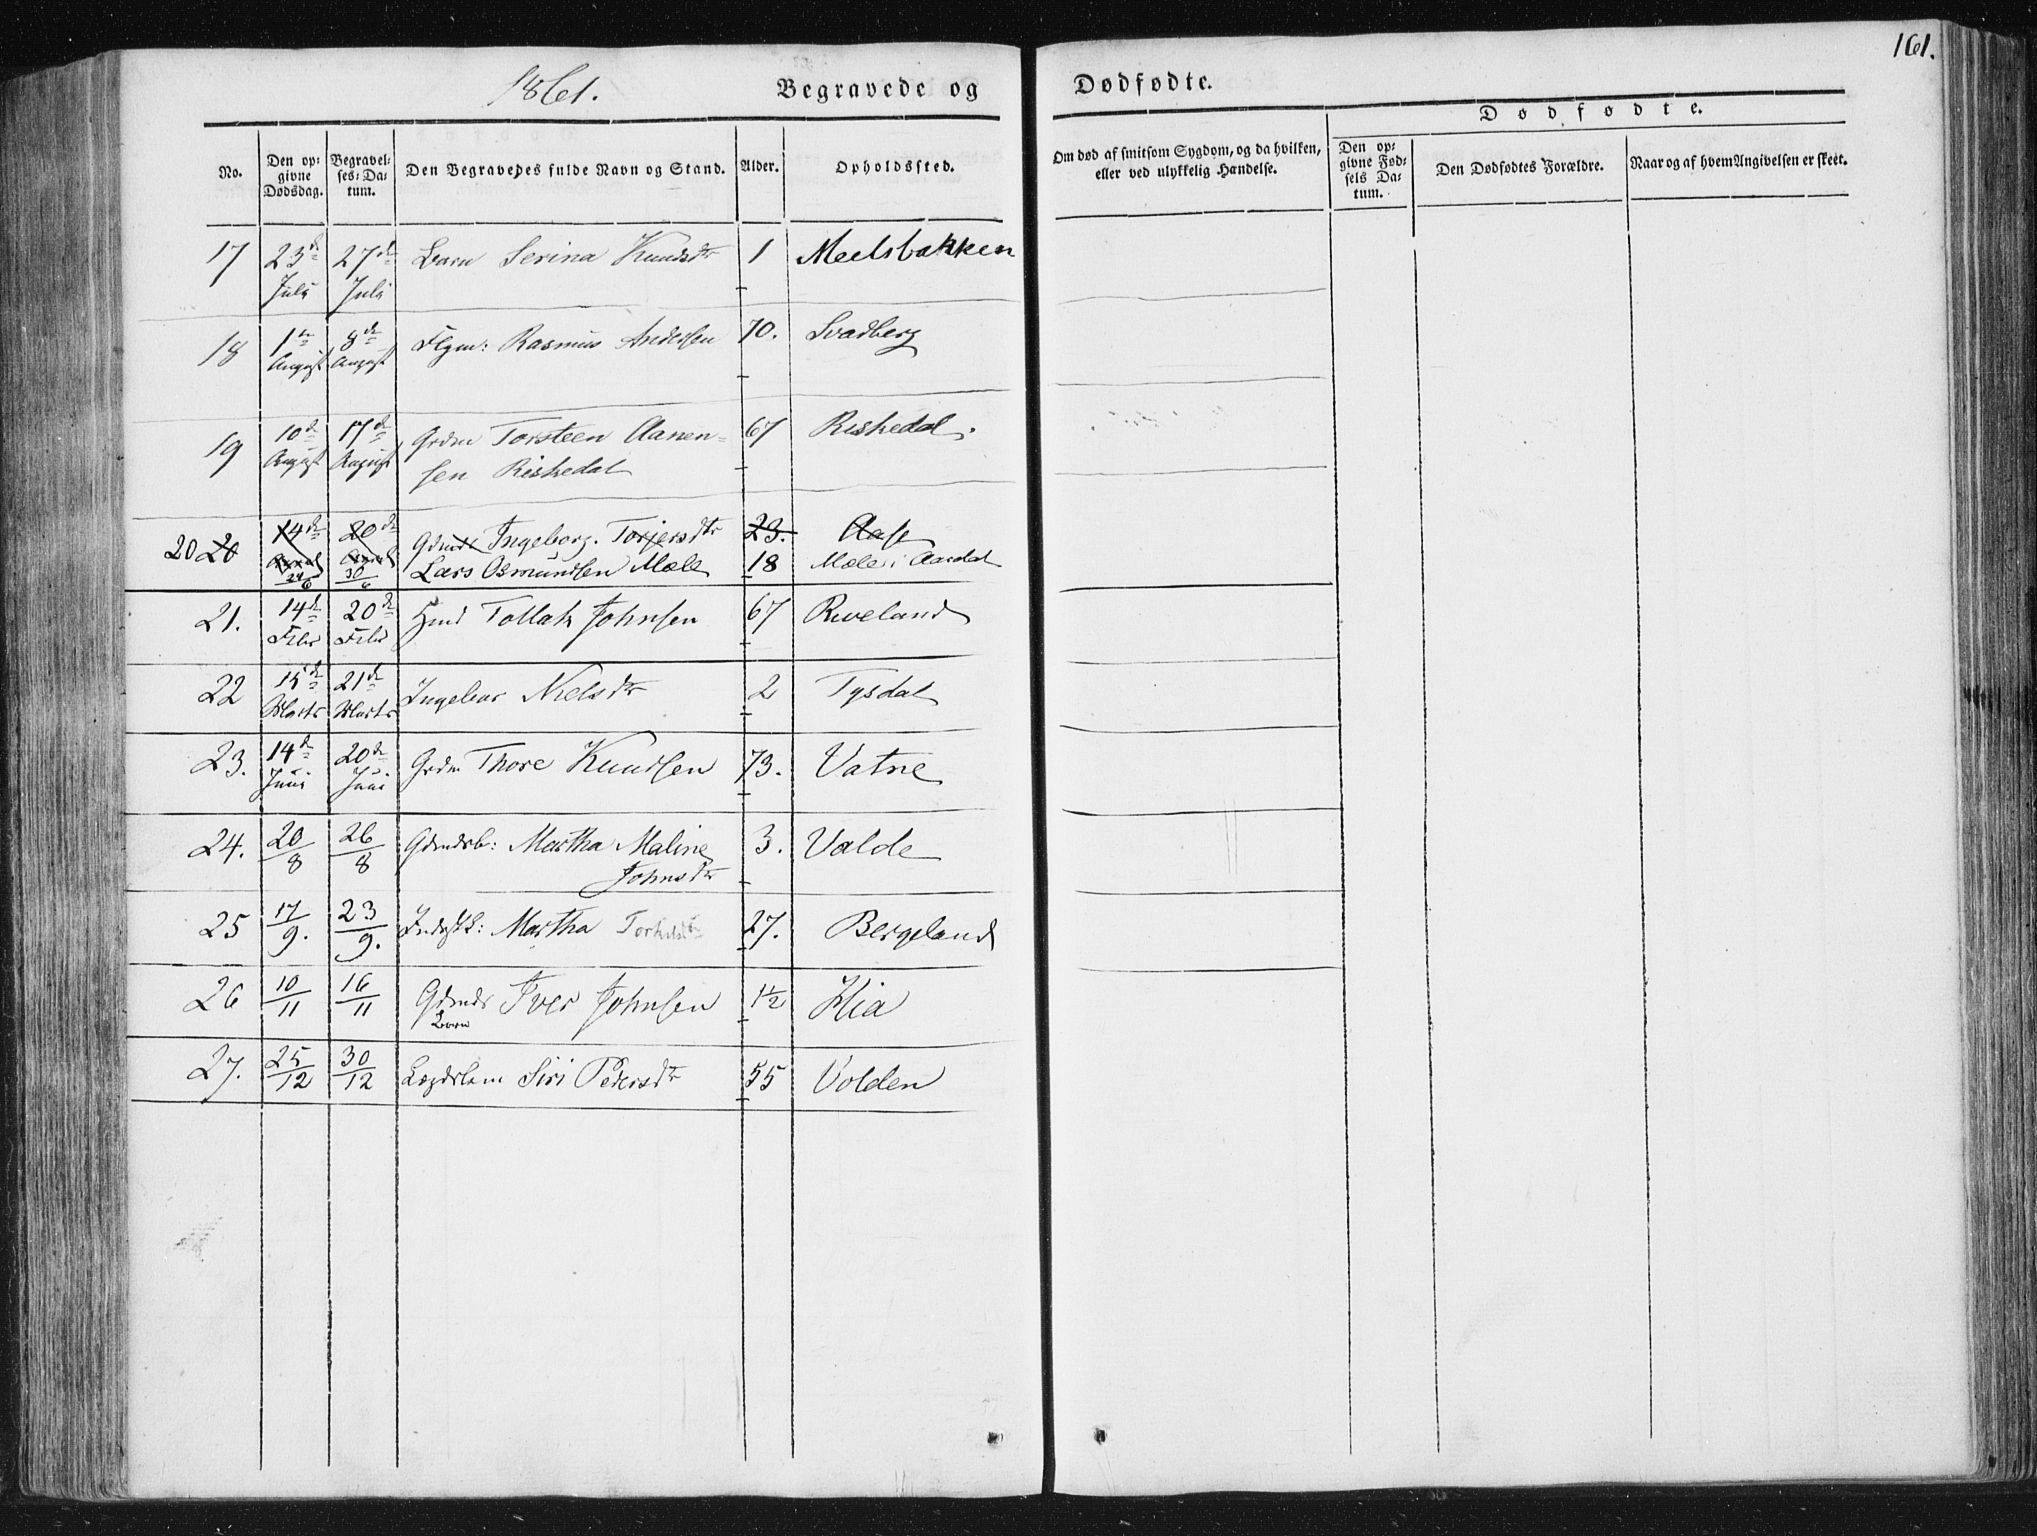 161.
1861. Begravede og Dødfødte.
Dødfødte.
No. Den opgivne Dødsdag. Begravelses-Datum. Den Begravedes fulde Navn og Stand. Alder. Opholdssted. Om død af smitsom Sygdom, og da hvilken, eller ved ulykkelig Hændelse. Den opgivne Fødsels Datum. Den Dødfødtes Forældre. Naar og af hvem Angivelsen er skeet.
17 23de Juli 27de Juli Barn Serina Knudsdtr 1 Meelsbakken
18 1ste August 8de August Flgm: Rasmus Andersen 70. Svadberg
19 10de August 17de August Grdm Torsteen Aanen-
sen Riskedal 67 Riskedal.
20 14de 20de Ingeborg Torjersdtr 23. Aase
20 24/6 30/6 Lars Osmundsen Mæle 18 Mæle i Aardal
21. 14de Febr 20de Febr Tollak Johnsen 67 Riveland
22 15de Marts 21de Marts Ingebor Nielsdtr 2 Tysdal
23. 14de Juni 20de Juni Grdm Thore Knudsen 73. Vatne
24. 20/8 26/8 Gdmdsb: Martha Maline
Johnsdtr 3. Valde
25 17/9. 23/9. Martha 27. Bergeland
26 10/11 16/11 Gdmds Barn Iver Johnsen 1½ Hia
27. 25/12 30/12 Lægdslem Siri Pedersdtr 55 Volden